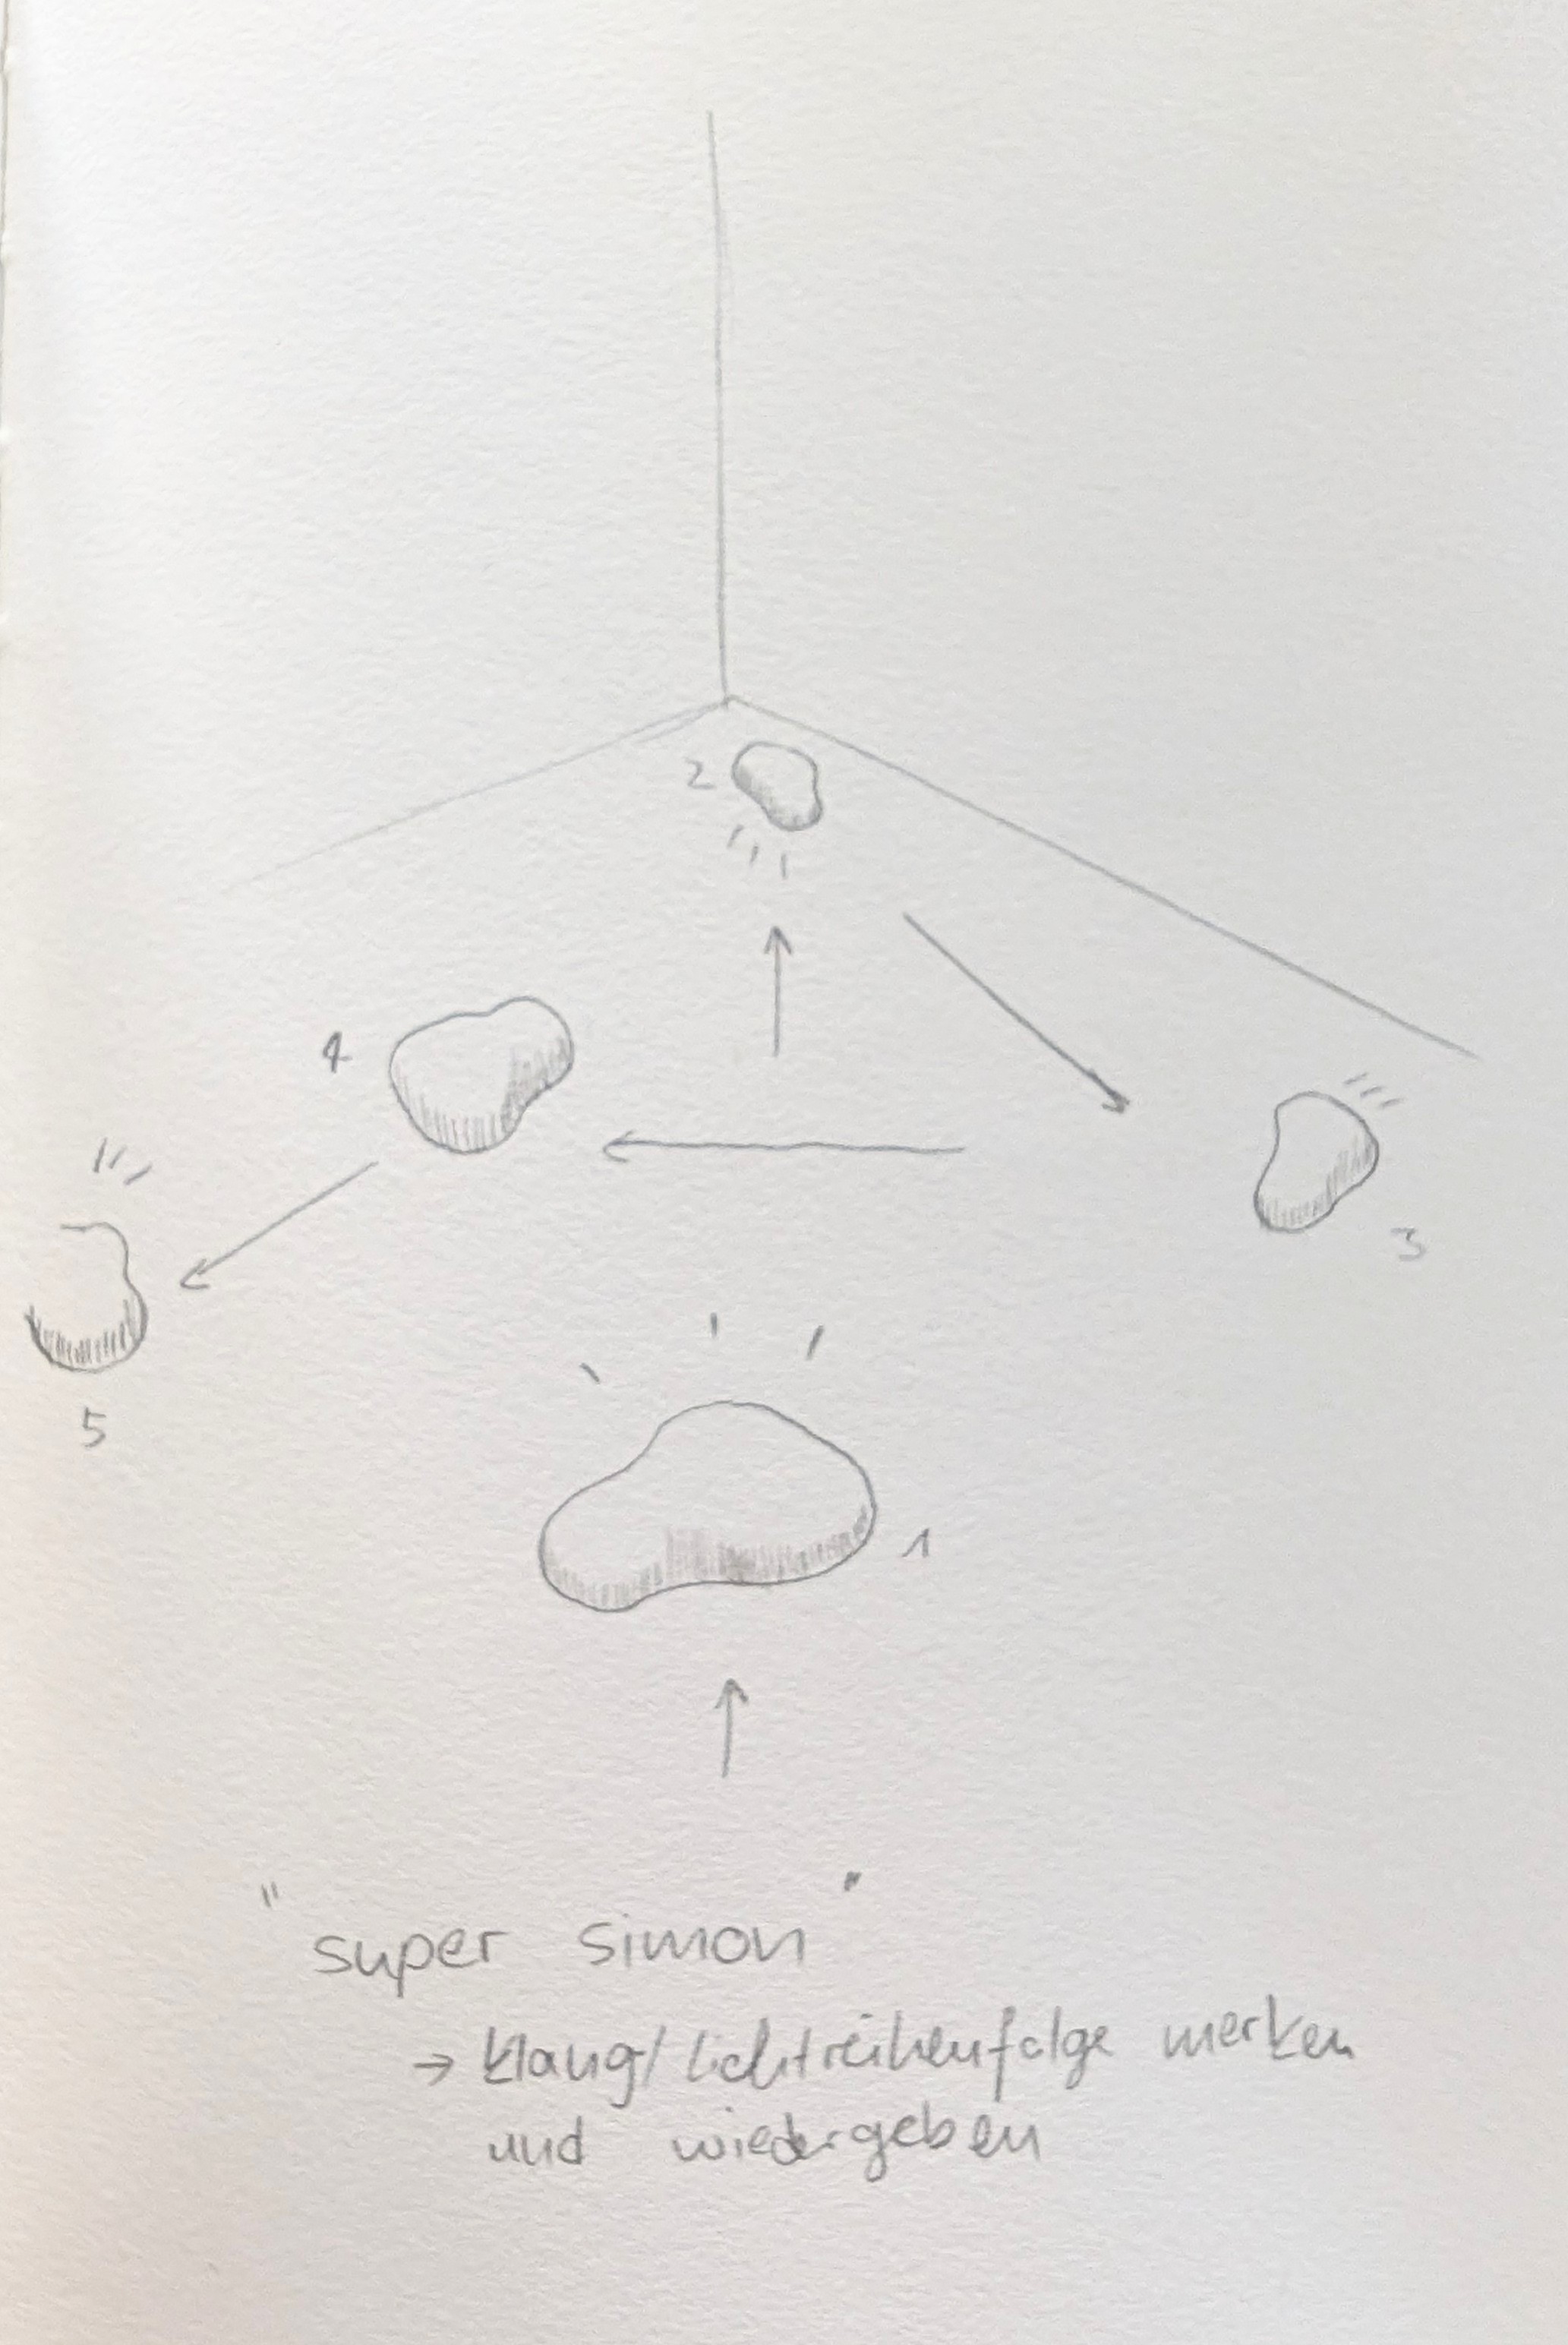 2
4
3
5
1
"super simon"
→ Klang/Lichtreihenfolge merken
und wiedergeben